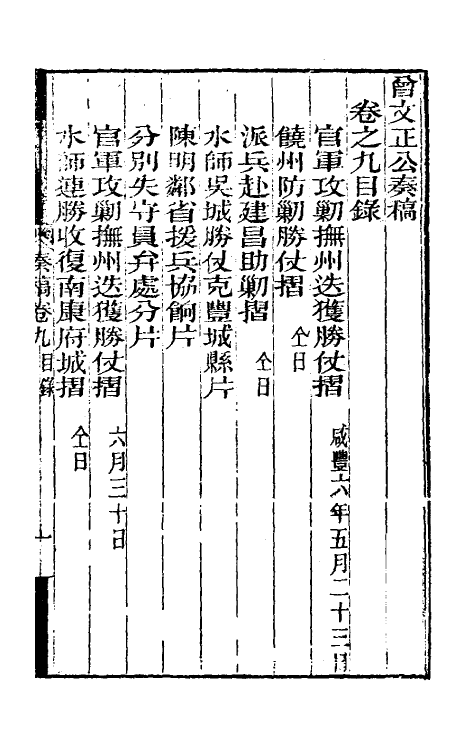 曾文正公奏稿
卷之九目錄
官軍攻剿撫州迭獲勝仗摺 咸豐六年五月二十三日
饒州防剿勝仗摺 仝日
派兵赴建昌助剿摺 仝日
水師吳城勝仗克豐城縣片
陳明鄰省援兵協餉片
分別失守員弁處分片
官軍攻剿撫州迭獲勝仗摺 六月三十日
水師連勝收復南康府城摺 仝日
奏稿卷九目錄 一